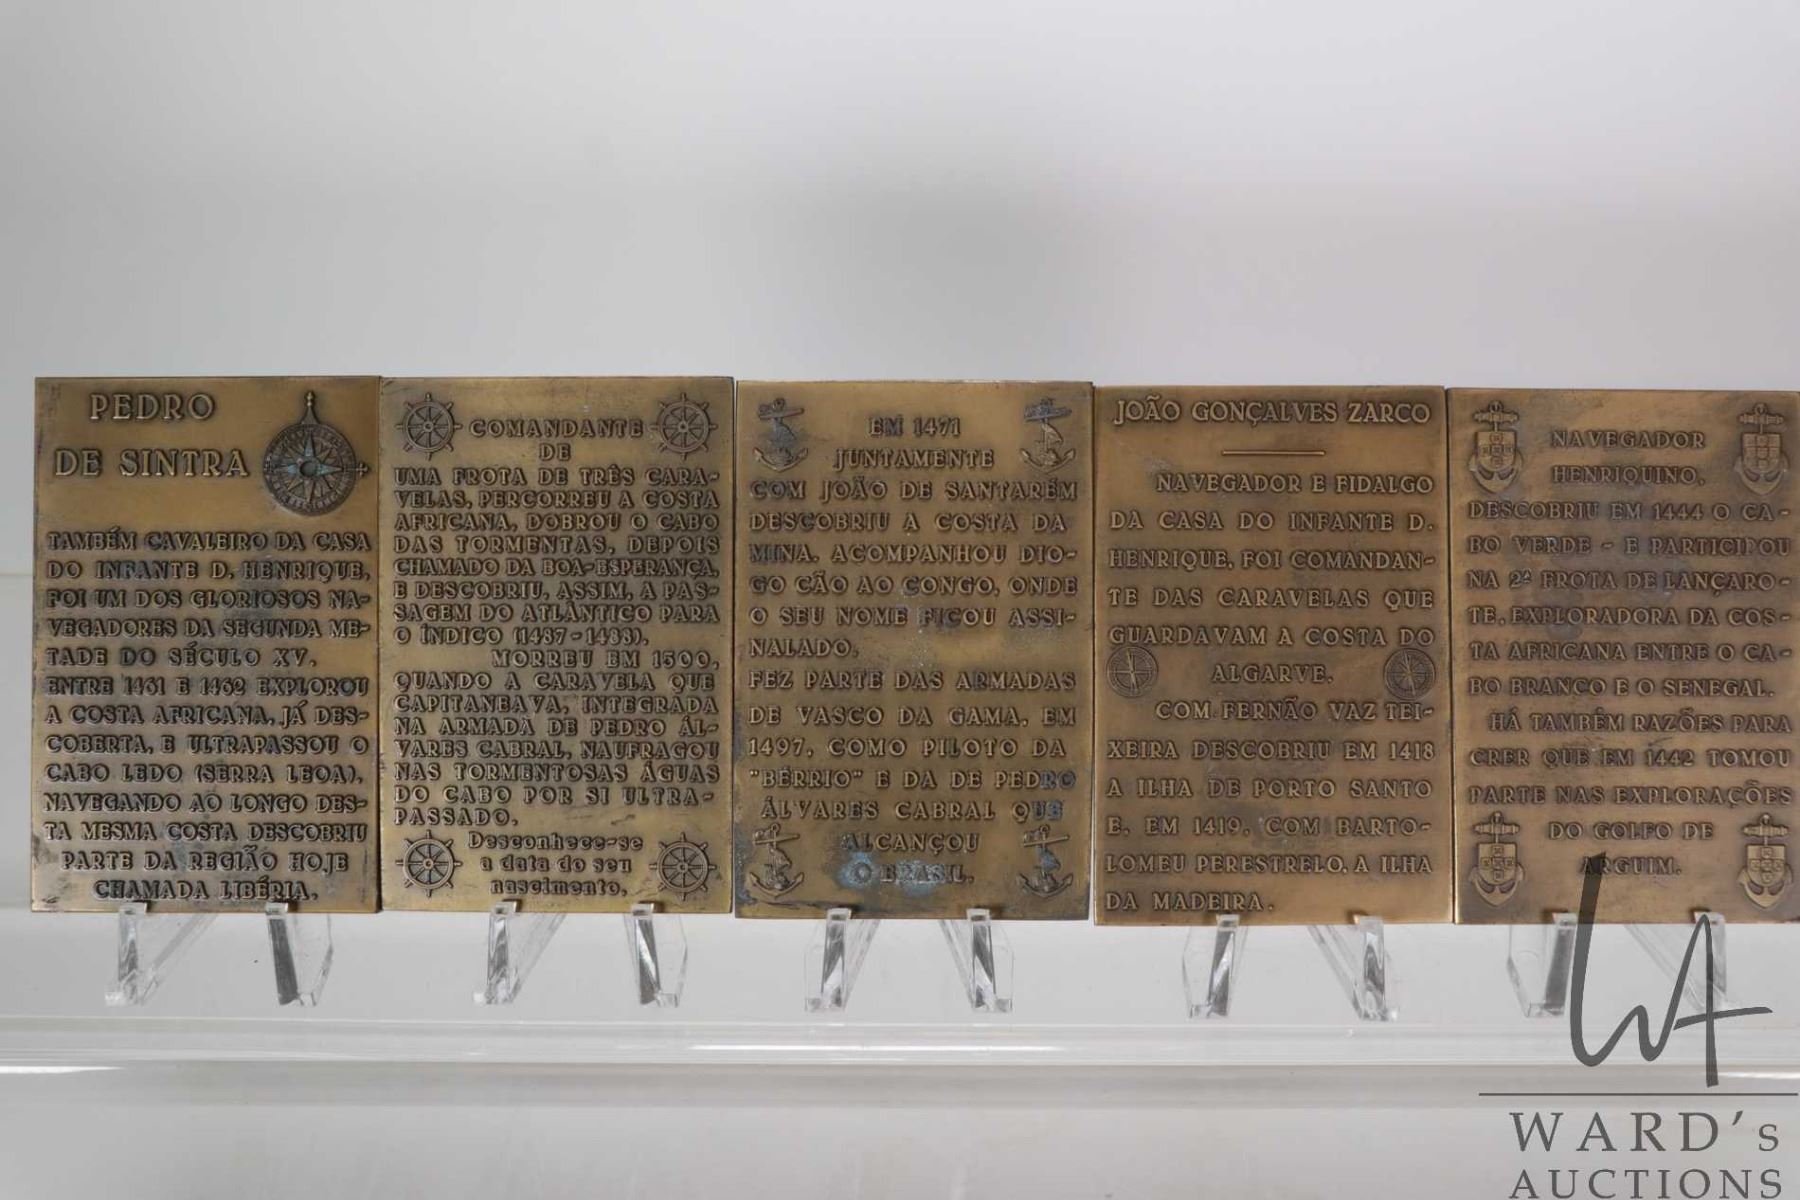 PEDRO
DE SINTRA
TAMBÉM CAVALEIRO DA CASA
DO INFANTE D. HENRIQUE,
FOI UM DOS GLORIOSOS NA-
VEGADORES DA SEGUNDA ME-
TADE DO SÉCULO XV.
ENTRE 1461 E 1462 EXPLOROU
A COSTA AFRICANA, JÁ DES-
COBERTA, E ULTRAPASSOU O
CABO LEDO (SERRA LEOA).
NAVEGANDO AO LONGO DES-
TA MESMA COSTA DESCOBRIU
PARTE DA REGIÃO HOJE
CHAMADA LIBÉRIA.
COMANDANTE
DE
UMA FROTA DE TRÊS CARA-
VELAS, PERCORREU A COSTA
AFRICANA, DOBROU O CABO
DAS TORMENTAS, DEPOIS
CHAMADO DA BOA-ESPERANÇA,
E DESCOBRIU, ASSIM, A PAS-
SAGEM DO ATLÂNTICO PARA
O ÍNDICO (1487-1488).
MORREU EM 1500,
QUANDO A CARAVELA QUE
CAPITANEAVA, INTEGRADA
NA ARMADA DE PEDRO ÁL-
VARES CABRAL, NAUFRAGOU
NAS TORMENTOSAS ÁGUAS
DO CABO POR SI ULTRA-
PASSADO.
Desconhece-se
a data do seu
nascimento.
EM 1471
JUNTAMENTE
COM JOÃO DE SANTARÉM
DESCOBRIU A COSTA DA
MINA. ACOMPANHOU DIO-
GO CÃO AO CONGO, ONDE
O SEU NOME FICOU ASSI-
NALADO.
FEZ PARTE DAS ARMADAS
DE VASCO DA GAMA, EM
1497, COMO PILOTO DA
"BÉRRIO" E DA DE PEDRO
ÁLVARES CABRAL QUE
ALCANÇOU
O BRASIL.
JOÃO GONÇALVES ZARCO
NAVEGADOR E FIDALGO
DA CASA DO INFANTE D.
HENRIQUE, FOI COMANDAN-
TE DAS CARAVELAS QUE
GUARDAVAM A COSTA DO
ALGARVE.
COM FERNÃO VAZ TEI-
XEIRA DESCOBRIU EM 1418
A ILHA DE PORTO SANTO
E, EM 1419, COM BARTO-
LOMEU PERESTRELO, A ILHA
DA MADEIRA.
NAVEGADOR
HENRIQUINO,
DESCOBRIU EM 1444 O CA-
BO VERDE - E PARTICIPOU
NA 2ª FROTA DE LANÇARO-
TE, EXPLORADORA DA COS-
TA AFRICANA ENTRE O CA-
BO BRANCO E O SENEGAL.
HÁ TAMBÉM RAZÕES PARA
CRER QUE EM 1442 TOMOU
PARTE NAS EXPLORAÇÕES
DO GOLFO DE
ARGUIM.
WA
WARD's
AUCTIONS